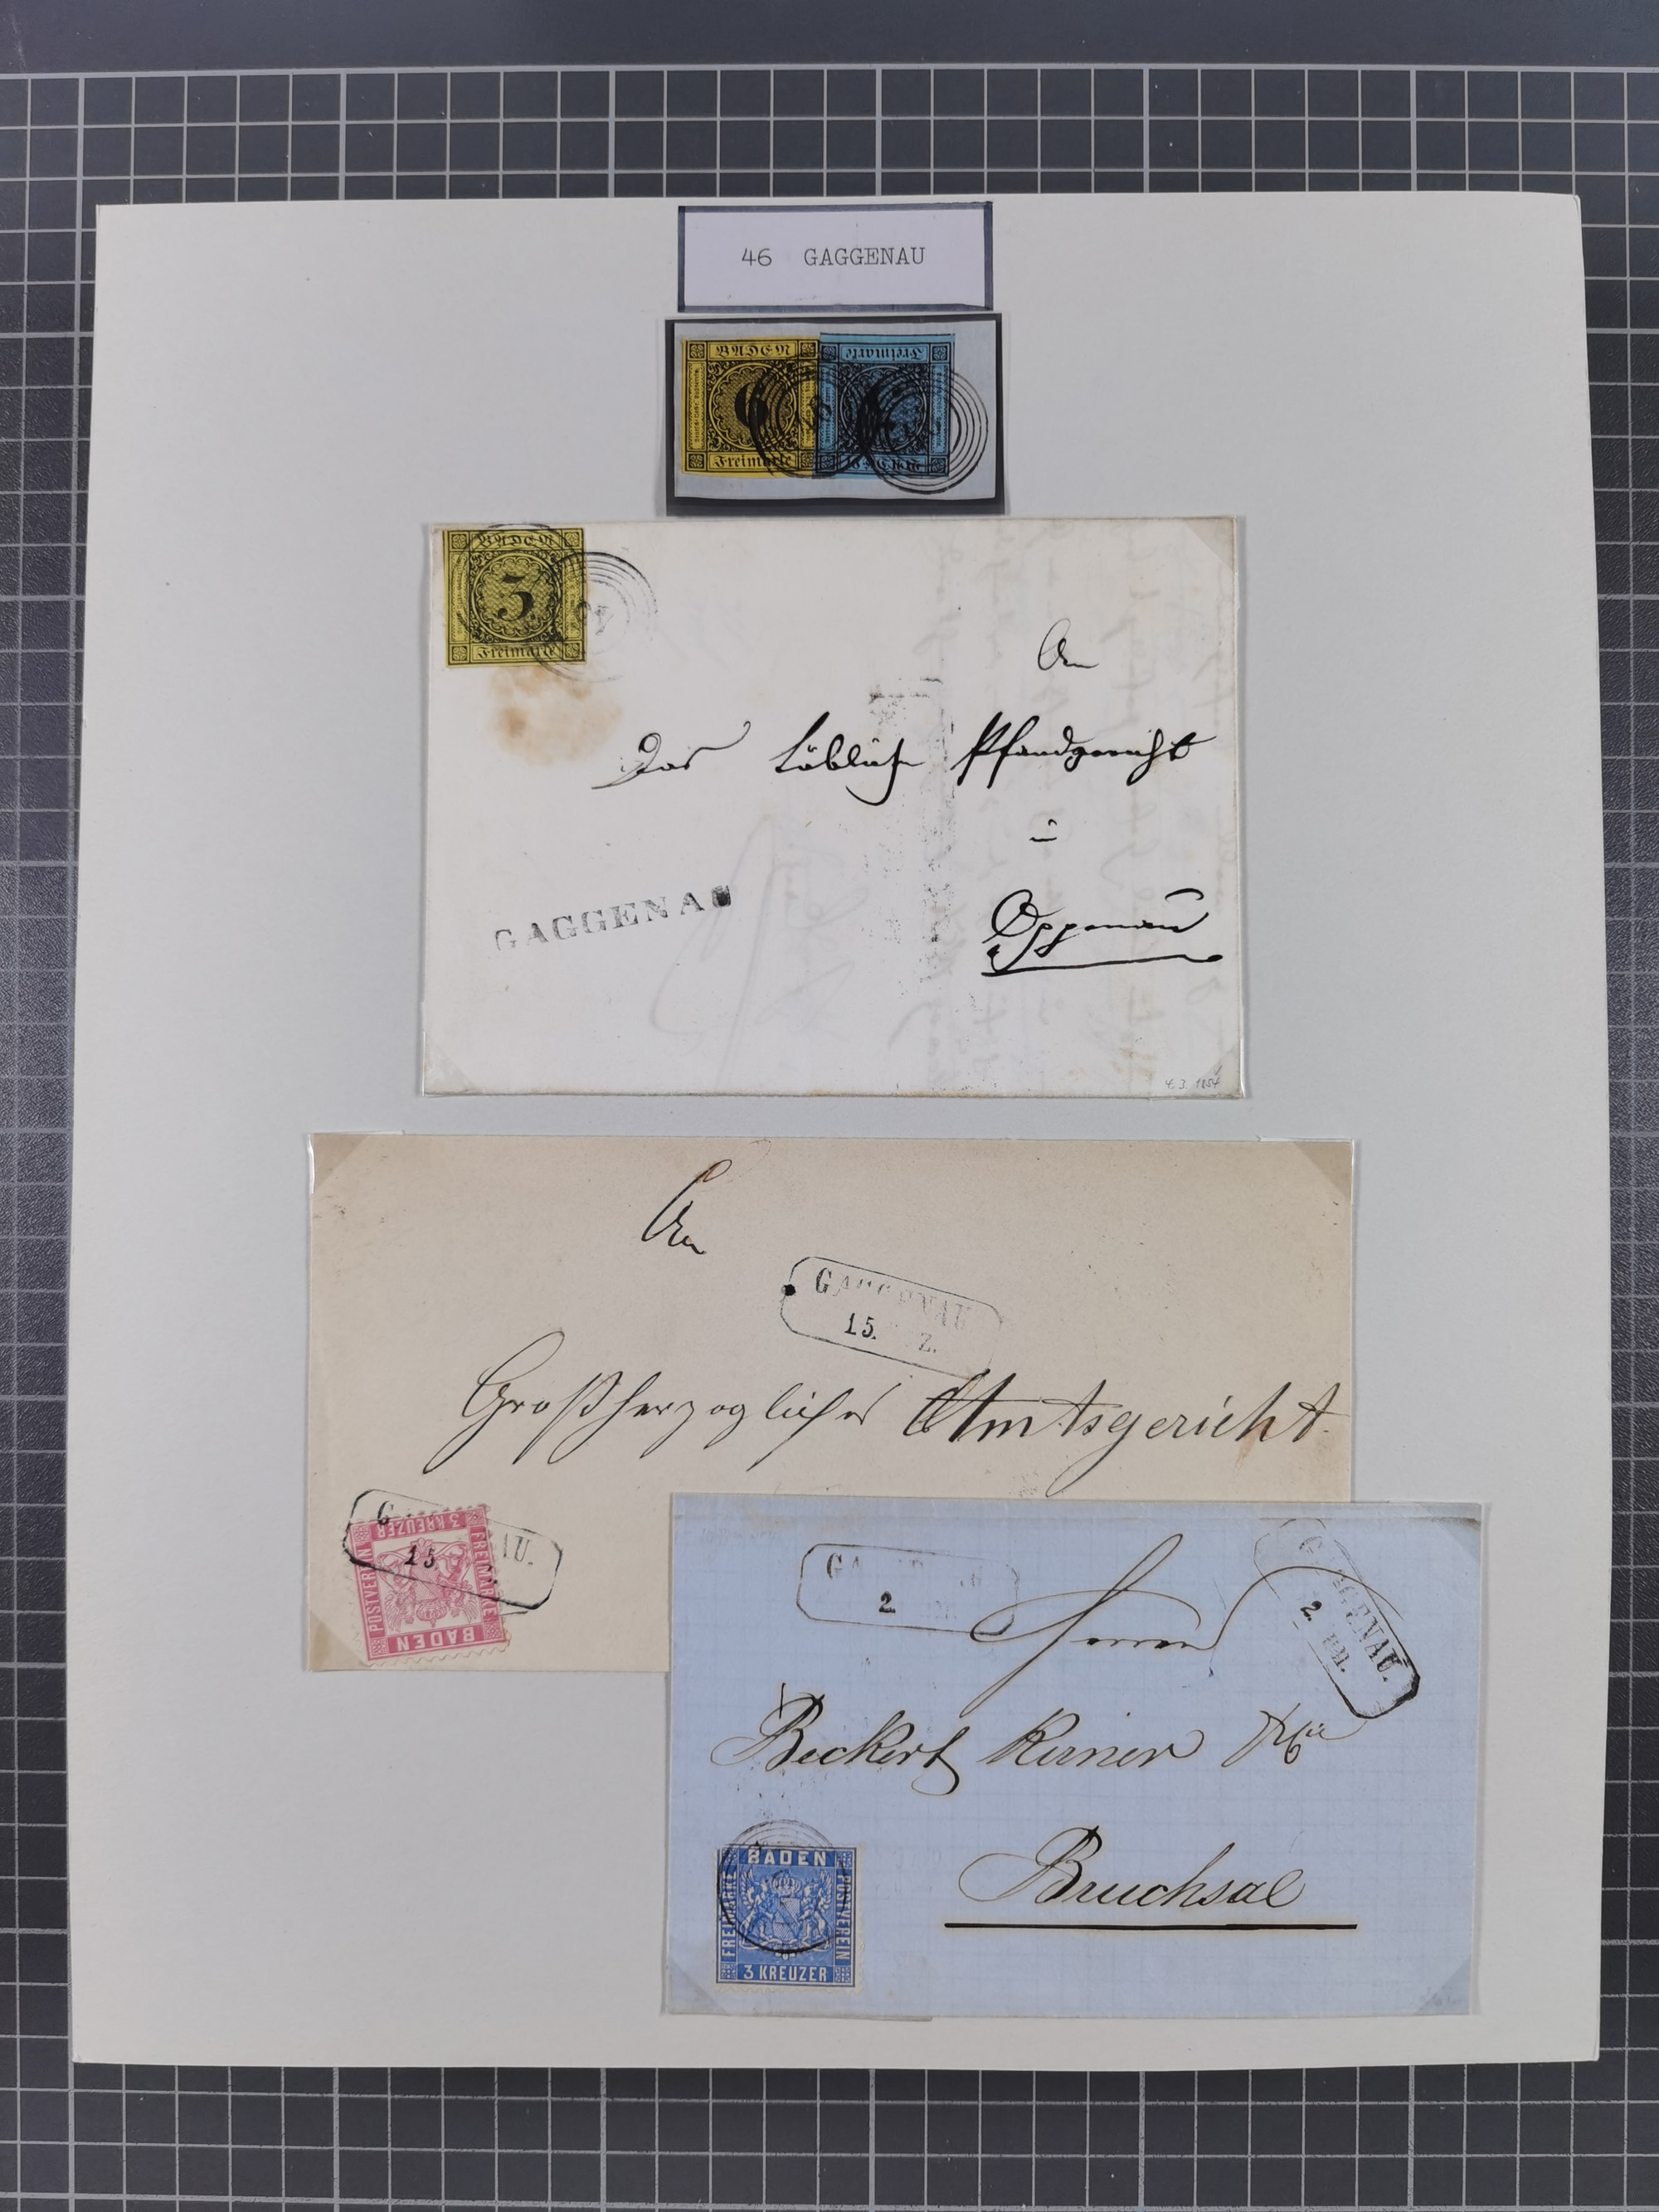 46 GAGGENAU
BADEN
6
Freimarke
Freimarke
BADEN
BADEN
3
Freimarke
An
Das Löbliche Pfandgericht
in
Oppenau
GAGGENAU
4.3.1854
An
GAGGENAU
15. Z.
Großherzogliches Amtsgericht.
G AU.
15.
3 KREUZER
POSTVEREIN
FREIMARKE
BADEN
GAGGENAU.
2.
2.
Herren
Bruchsal
BADEN
FREIMARKE
POSTVEREIN
3 KREUZER